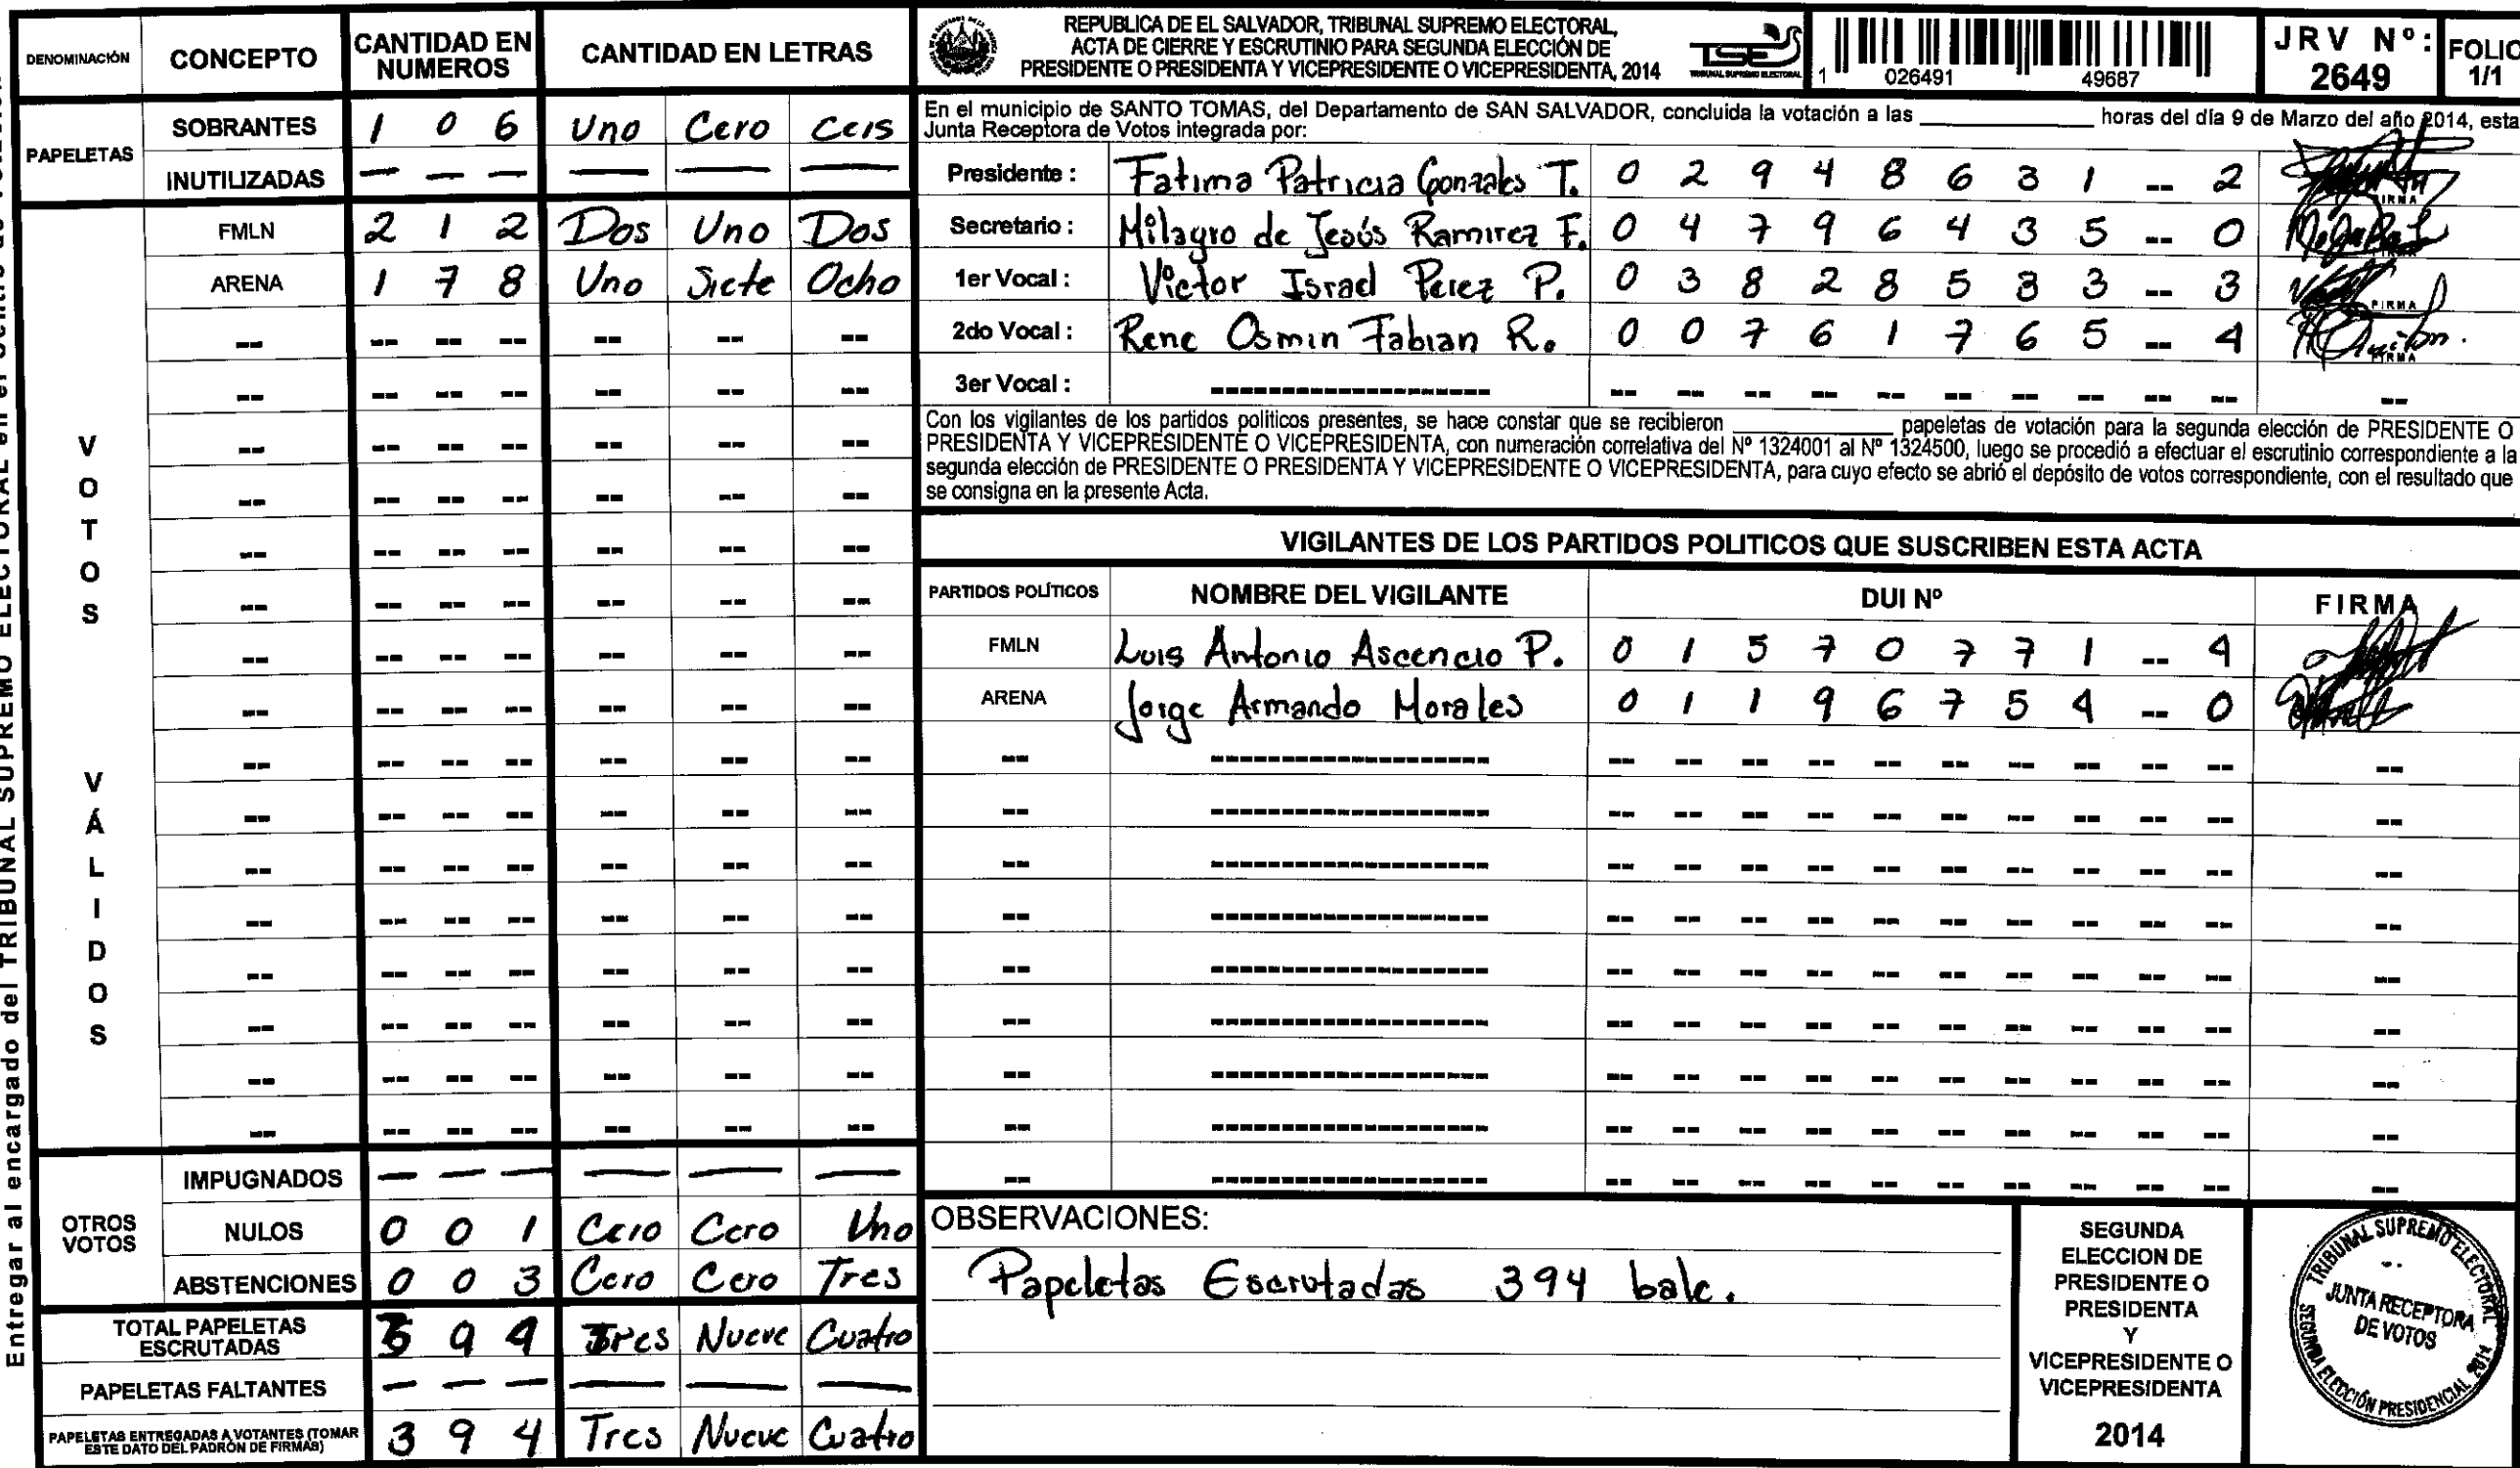 Entregar al encargado del TRIBUNAL SUPREMO ELECTORAL en el
DENOMINACIÓN CONCEPTO CANTIDAD EN NUMEROS CANTIDAD EN LETRAS
PAPELETAS
SOBRANTES 1 0 6 Uno Cero Ceis
INUTILIZADAS — — — — — —
VOTOS VÁLIDOS
FMLN 2 1 2 Dos Uno Dos
ARENA 1 7 8 Uno Siete Ocho
OTROS VOTOS
IMPUGNADOS — — — — — —
NULOS 0 0 1 Cero Cero Uno
ABSTENCIONES 0 0 3 Cero Cero Tres
TOTAL PAPELETAS ESCRUTADAS 3 9 4 Tres Nueve Cuatro
PAPELETAS FALTANTES — — — — — —
PAPELETAS ENTREGADAS A VOTANTES (TOMAR ESTE DATO DEL PADRÓN DE FIRMAS) 3 9 4 Tres Nueve Cuatro
REPUBLICA DE EL SALVADOR, TRIBUNAL SUPREMO ELECTORAL,
ACTA DE CIERRE Y ESCRUTINIO PARA SEGUNDA ELECCIÓN DE
PRESIDENTE O PRESIDENTA Y VICEPRESIDENTE O VICEPRESIDENTA, 2014
TSE
TRIBUNAL SUPREMO ELECTORAL
1 026491 49687
JRV Nº: 2649
FOLIO 1/1
En el municipio de SANTO TOMAS, del Departamento de SAN SALVADOR, concluida la votación a las ____ horas del día 9 de Marzo del año 2014, esta
Junta Receptora de Votos integrada por:
Presidente : Fatima Patricia Gonzales T. 0 2 9 4 8 6 3 1 -- 2 FIRMA
Secretario : Milagro de Jesús Ramirez F. 0 4 7 9 6 4 3 5 -- 0
1er Vocal : Victor Israel Perez P. 0 3 8 2 8 5 3 3 -- 3 FIRMA
2do Vocal : Rene Osmin Fabian R. 0 0 7 6 1 7 6 5 -- 4 FIRMA
3er Vocal : -- -- -- -- -- -- -- -- -- -- --
Con los vigilantes de los partidos políticos presentes, se hace constar que se recibieron ____ papeletas de votación para la segunda elección de PRESIDENTE O
PRESIDENTA Y VICEPRESIDENTE O VICEPRESIDENTA, con numeración correlativa del Nº 1324001 al Nº 1324500, luego se procedió a efectuar el escrutinio correspondiente a la
segunda elección de PRESIDENTE O PRESIDENTA Y VICEPRESIDENTE O VICEPRESIDENTA, para cuyo efecto se abrió el depósito de votos correspondiente, con el resultado que
se consigna en la presente Acta.
VIGILANTES DE LOS PARTIDOS POLITICOS QUE SUSCRIBEN ESTA ACTA
PARTIDOS POLÍTICOS NOMBRE DEL VIGILANTE DUI Nº FIRMA
FMLN Luis Antonio Ascencio P. 0 1 5 7 0 7 7 1 -- 4
ARENA Jorge Armando Morales 0 1 1 9 6 7 5 4 -- 0
OBSERVACIONES:
Papeletas Escrutadas 394 bale.
SEGUNDA
ELECCION DE
PRESIDENTE O
PRESIDENTA
Y
VICEPRESIDENTE O
VICEPRESIDENTA
2014
TRIBUNAL SUPREMO ELECTORAL
JUNTA RECEPTORA
DE VOTOS
SEGUNDA ELECCIÓN PRESIDENCIAL 2014